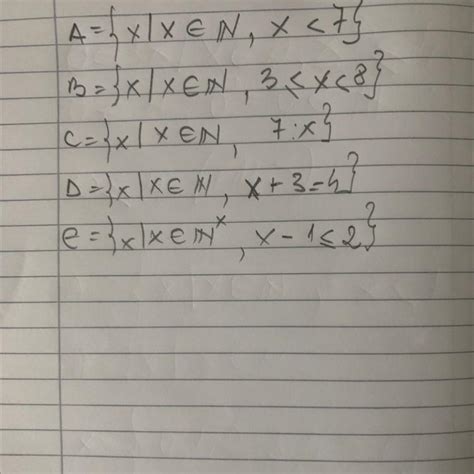 A={x|x∈ℕ, x<7}
B={x|x∈ℕ, 3≤x<8}
C={x|x∈ℕ, 7:x}
D={x|x∈ℕ, x+3=4}
e={x|x∈ℕˣ, x-1≤2}